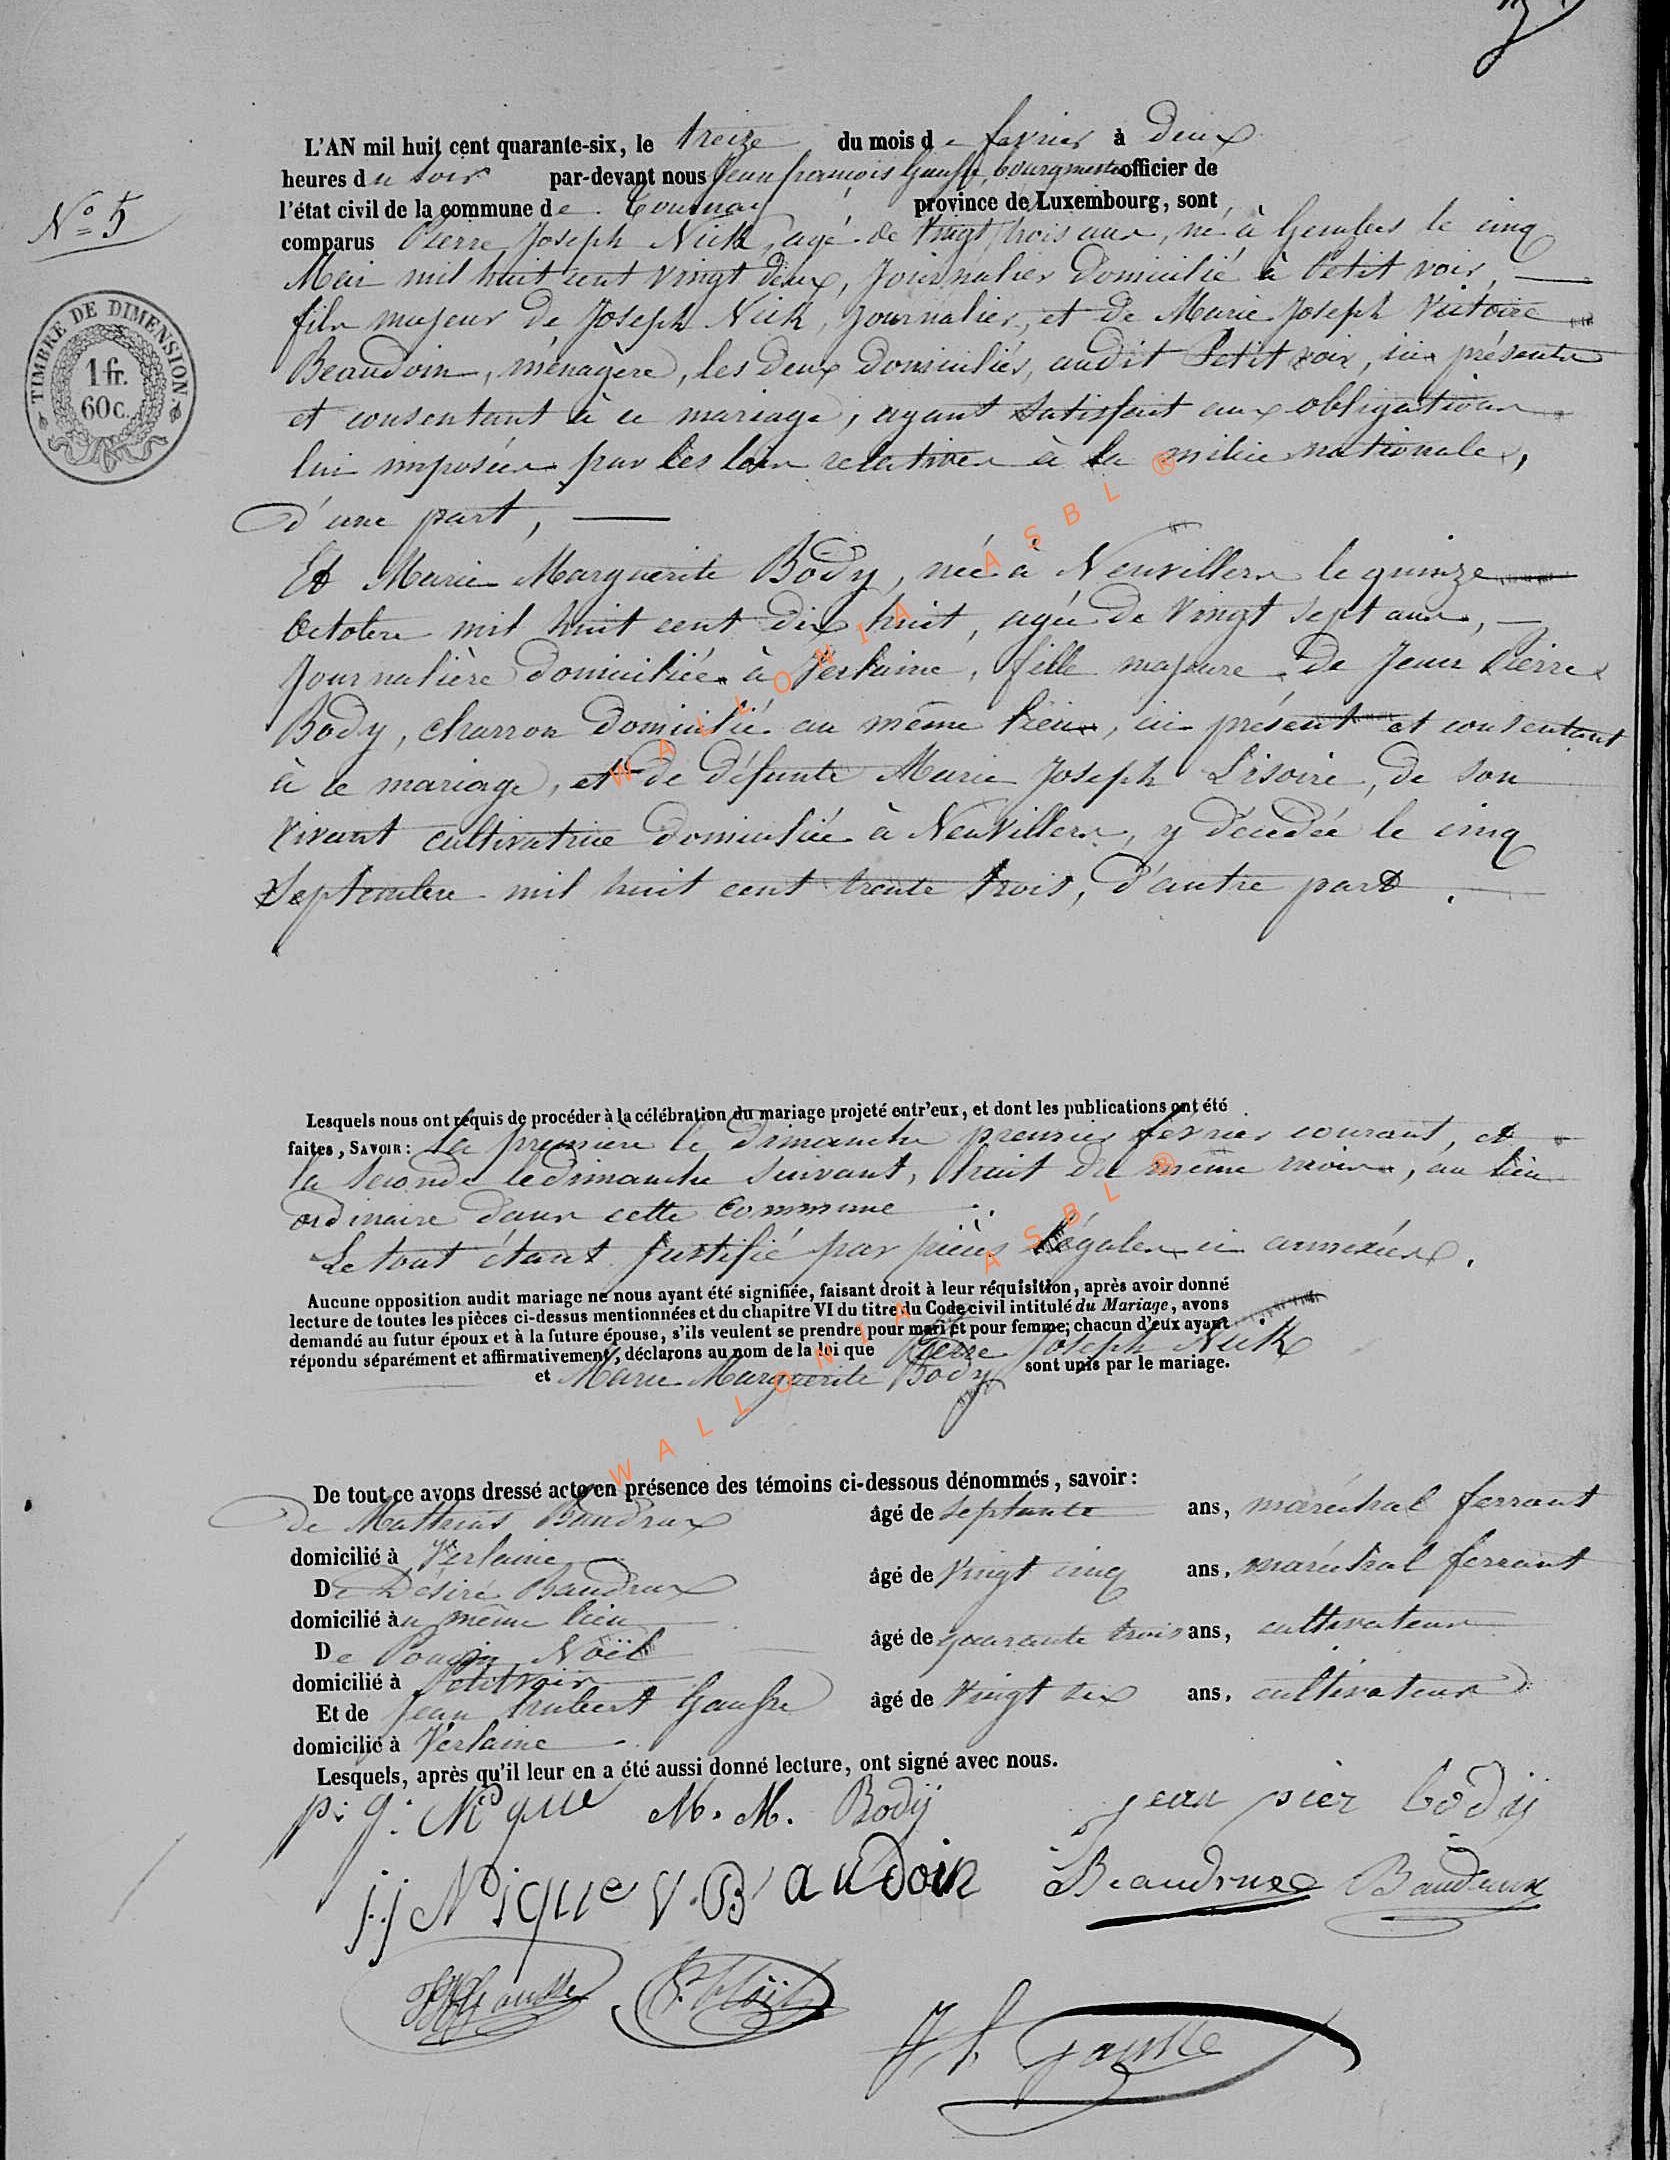 L'AN mil huit cent quarante-six, le treize du mois de fevrier à deux
heures du soir par-devant nous Jean françois Gausse, bourgmestre officier de
l'état civil de la commune de Tournay province de Luxembourg, sont
N° 5
comparus Pierre Joseph Nick, agé de vingt trois ans, né à Gembes le cinq
Mai mil huit cent vingt deux, Journalier domicilié à Petit voir,
fils majeur de Joseph Nick, Journalier, et de Marie Joseph Victoire
Beaudoin, ménagère, les deux domiciliés, audit Petit voir, ici présents
et consentant à ce mariage, ayant satisfait aux obligations
lui imposées par les lois relatives à la milice nationale,
d'une part,
TIMBRE DE DIMENSION.
1 fr.
60 c.
Et Marie Marguerite Body, née à Neuvillers le quinze
Octobre mil huit cent dix huit, agée de vingt sept ans,
Journalière domiciliée à Verlaine, fille majeure de Jean Pierre
Body, charron domicilié au même lieu, ici présent et consentant
à ce mariage, et de défunte Marie Joseph Lisoire, de son
vivant cultivatrice domiciliée à Neuvillers, y décedée le cinq
Septembre mil huit cent trente trois, d'autre part.
Lesquels nous ont requis de procéder à la célébration du mariage projeté entr'eux, et dont les publications ont été
faites, SAVOIR: La premiere le dimanche premier fevrier courant, et
la seconde le dimanche suivant, huit du même mois, au lieu
ordinaire dans cette commune
Le tout étant justifié par pièces légales ci annexées.
Aucune opposition audit mariage ne nous ayant été signifiée, faisant droit à leur réquisition, après avoir donné
lecture de toutes les pièces ci-dessus mentionnées et du chapitre VI du titre du Code civil intitulé du Mariage, avons
demandé au futur époux et à la future épouse, s'ils veulent se prendre pour mari et pour femme; chacun d'eux ayant
répondu séparément et affirmativement, déclarons au nom de la loi que Pierre Joseph Nick
et Marie Marguerite Body sont unis par le mariage.
De tout ce avons dressé acte en présence des témoins ci-dessous dénommés, savoir:
De Mathias Baudrux âgé de septante ans, maréchal ferrant
domicilié à Verlaine
De Désiré Baudrux âgé de vingt cinq ans, maréchal ferrant
domicilié au même lieu
De Poncin Noël âgé de quarante trois ans, cultivateur
domicilié à Petitvoir
Et de Jean hubert Gausse âgé de vingt six ans, cultivateur
domicilié à Verlaine
Lesquels, après qu'il leur en a été aussi donné lecture, ont signé avec nous.
p: j: Nique M. M. Body jean pier body
j j Nique V. Baudoin Beaudrux Baudrux
JHGausse P. Noël
J f. Gausse
WALLONIA ASBL ®
WALLONIA ASBL ®